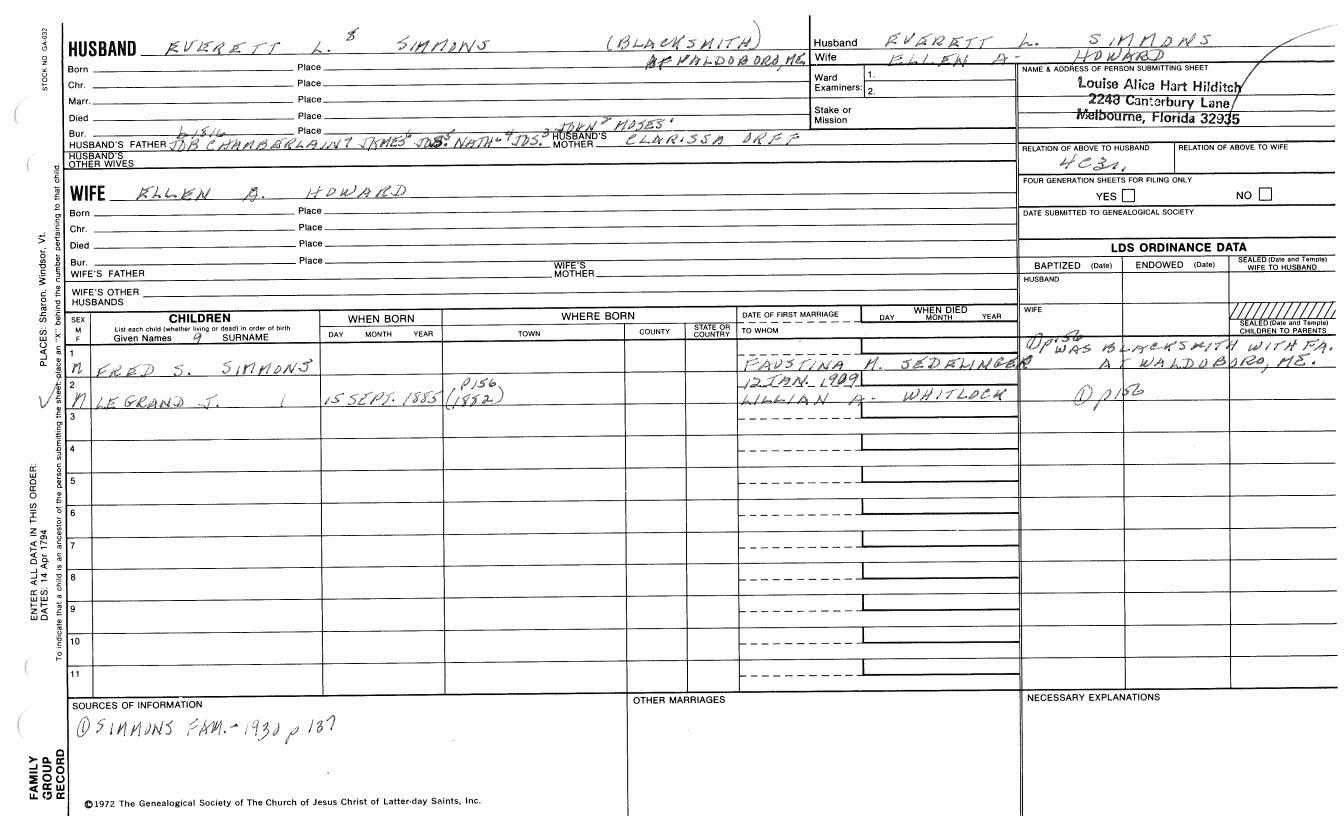 STOCK NO. GA-032
HUSBAND EVERETT L. 8 SIMMONS (BLACKSMITH)
AT WALDOBORO, ME
Born Place
Chr. Place
Marr. Place
Died Place
Bur. b 1816 Place
JOHN 2 MOSES 1
HUSBAND'S FATHER JOB CHAMBERLAIN 7 JAMES 6 JOS. 5 NATH- 4 JOS. 3 HUSBAND'S MOTHER CLARISSA ORFF
HUSBAND'S OTHER WIVES
WIFE ELLEN A. HOWARD
Born Place
Chr. Place
Died Place
Bur. Place
WIFE'S FATHER WIFE'S MOTHER
WIFE'S OTHER HUSBANDS
Husband EVERETT L. SIMMONS
Wife ELLEN A- HOWARD
Ward Examiners: 1.
2.
Stake or Mission
NAME & ADDRESS OF PERSON SUBMITTING SHEET
Louise Alice Hart Hilditch
2248 Canterbury Lane
Melbourne, Florida 32935
RELATION OF ABOVE TO HUSBAND RELATION OF ABOVE TO WIFE
4C3r.
FOUR GENERATION SHEETS FOR FILING ONLY
YES NO
DATE SUBMITTED TO GENEALOGICAL SOCIETY
LDS ORDINANCE DATA
BAPTIZED (Date) ENDOWED (Date) SEALED (Date and Temple) WIFE TO HUSBAND
HUSBAND
WIFE
SEALED (Date and Temple) CHILDREN TO PARENTS
SEX M F
CHILDREN
List each child (whether living or dead) in order of birth
Given Names 9 SURNAME
WHEN BORN
DAY MONTH YEAR
WHERE BORN
TOWN COUNTY STATE OR COUNTRY
DATE OF FIRST MARRIAGE
TO WHOM
WHEN DIED
DAY MONTH YEAR
1
M FRED S. SIMMONS FAUSTINA M. SEDELINGER
① p156 WAS BLACKSMITH WITH FA.
AT WALDOBORO, ME.
2 p156 12 JAN. 1909
M LEGRAND J. 15 SEPT. 1885 (1882) LILLIAN A- WHITLOCK ① p156
3
4
5
6
7
8
9
10
11
SOURCES OF INFORMATION
① SIMMONS FAM.- 1930 p 137
OTHER MARRIAGES
NECESSARY EXPLANATIONS
©1972 The Genealogical Society of The Church of Jesus Christ of Latter-day Saints, Inc.
FAMILY GROUP RECORD
ENTER ALL DATA IN THIS ORDER:
DATES: 14 Apr 1794
PLACES: Sharon, Windsor, Vt.
To indicate that a child is an ancestor of the person submitting the sheet, place an "X" behind the number pertaining to that child.